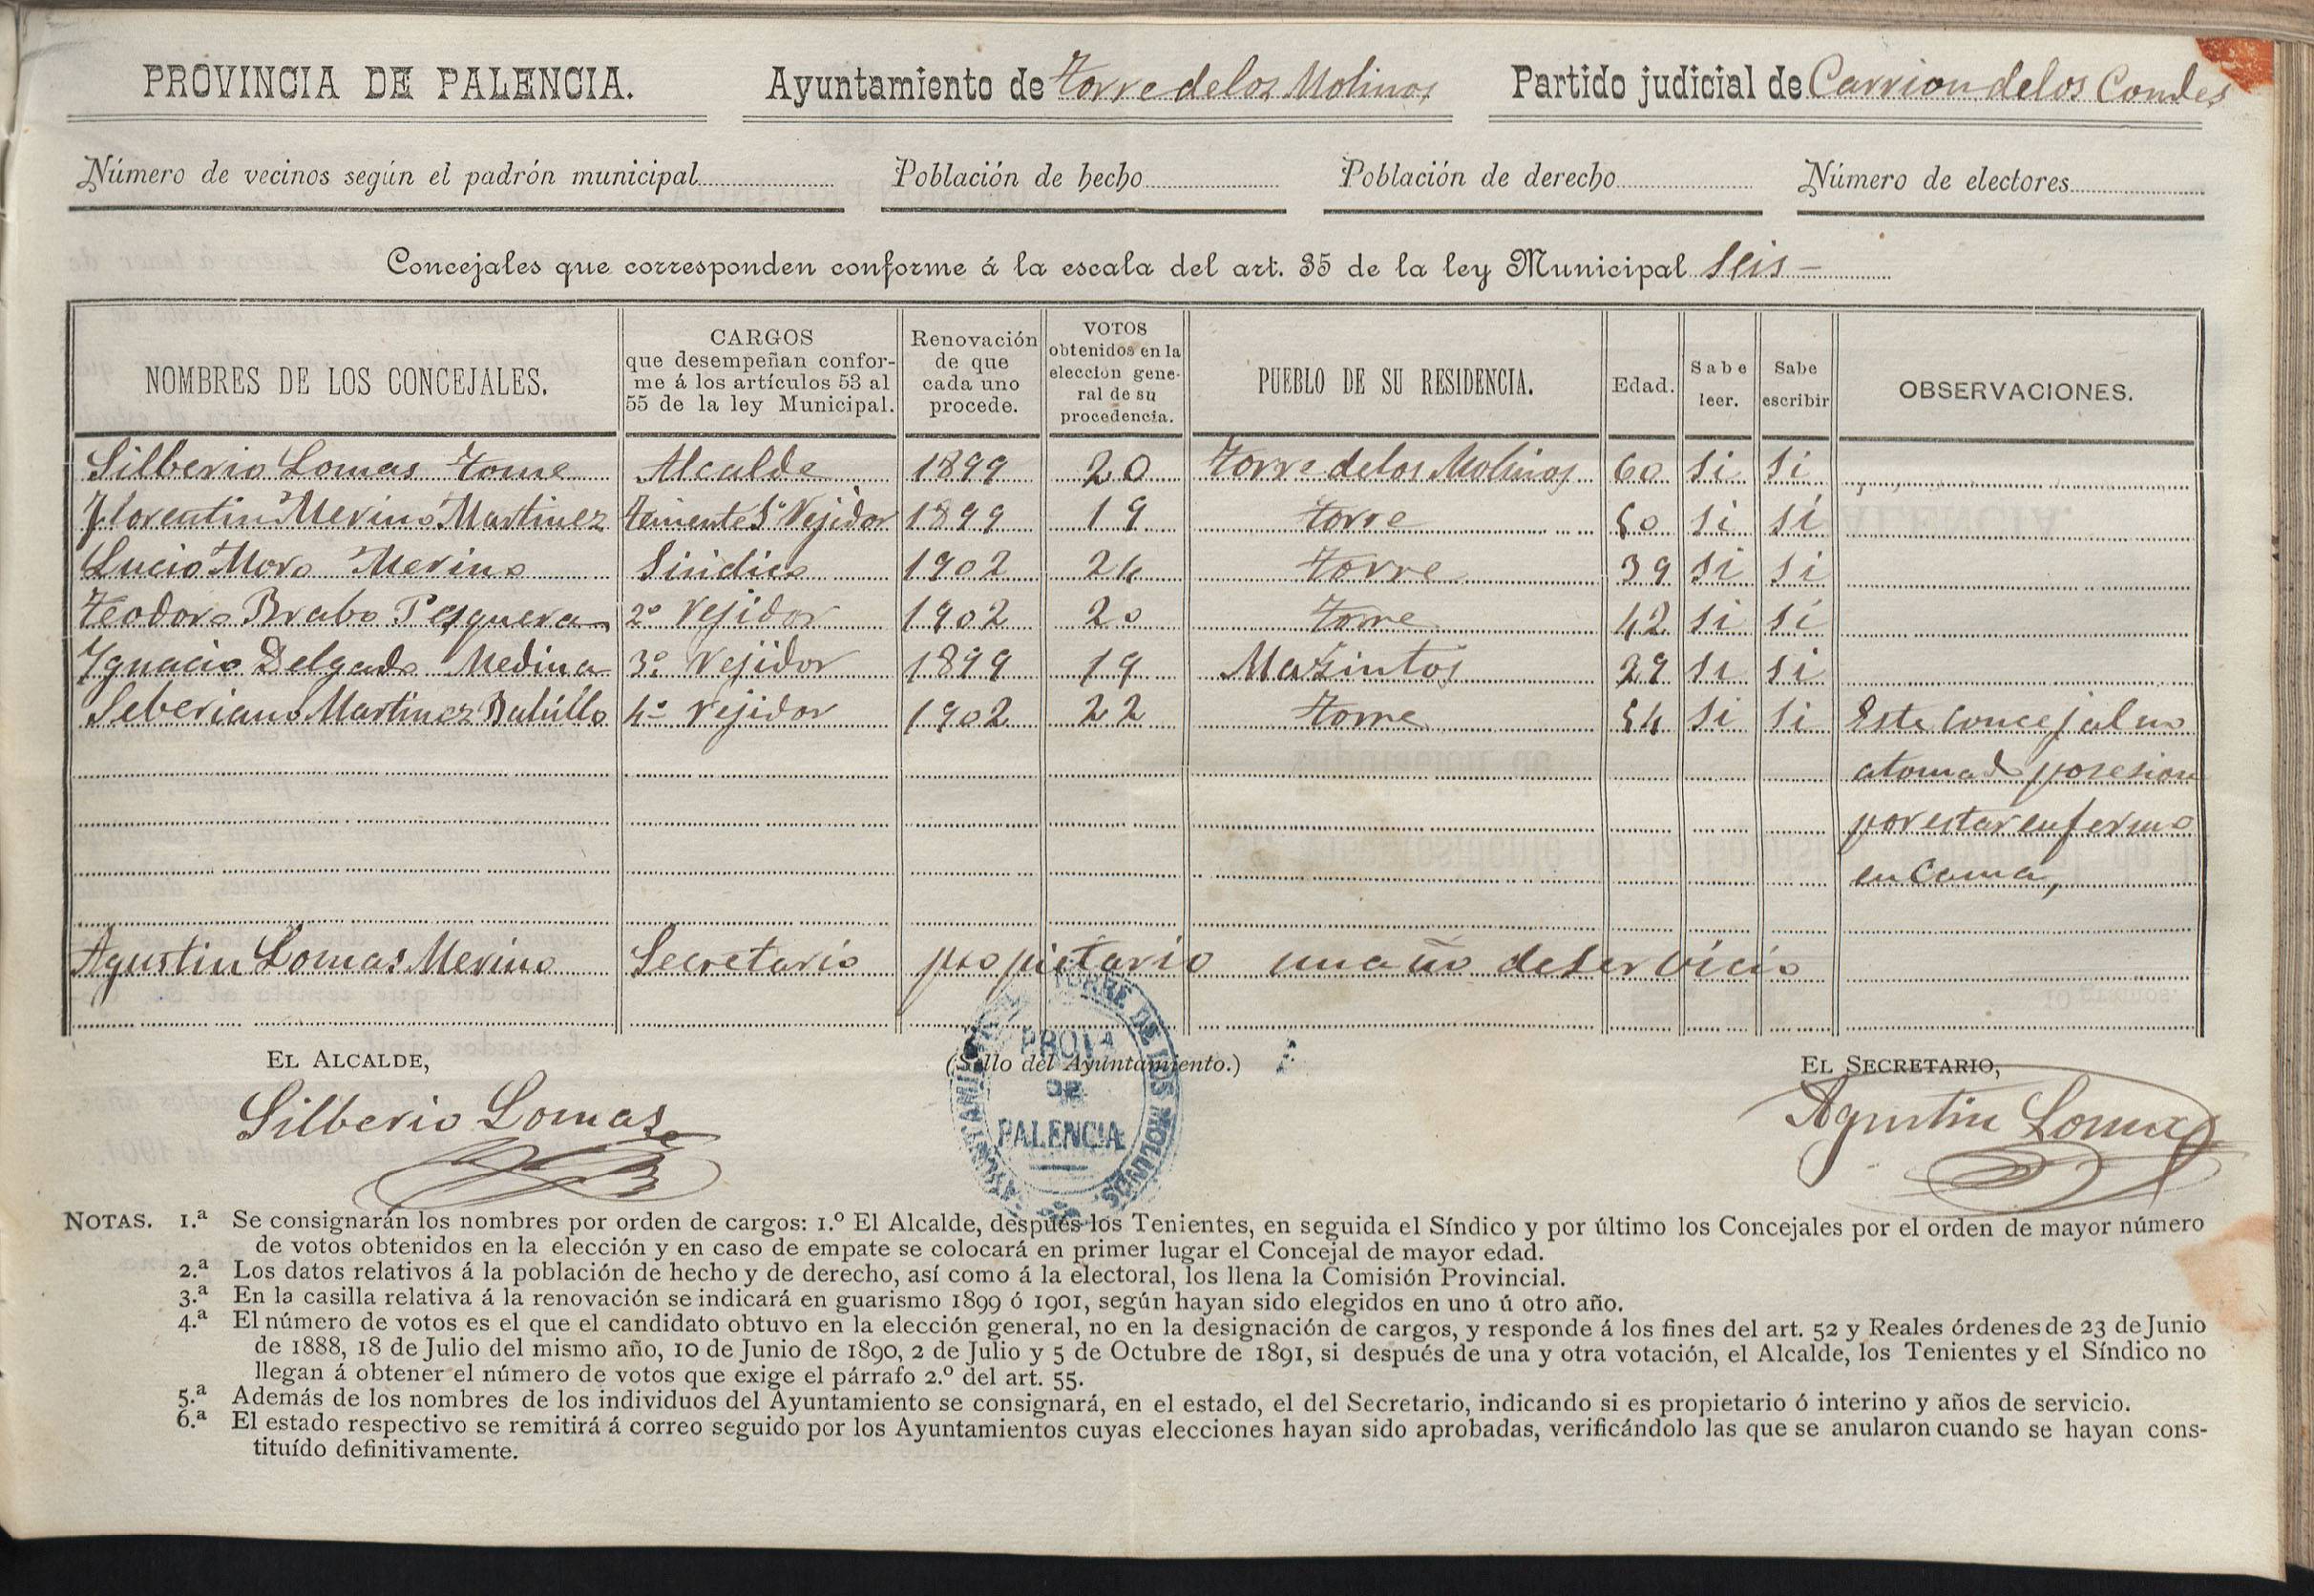 PROVINCIA DE PALENCIA. Ayuntamiento de Torre de los Molinos Partido judicial de Carrion de los Condes
Número de vecinos según el padrón municipal Población de hecho Población de derecho Número de electores
Concejales que corresponden conforme á la escala del art. 35 de la ley Municipal Seis -
NOMBRES DE LOS CONCEJALES.
CARGOS
que desempeñan confor-
me á los artículos 53 al
55 de la ley Municipal.
Renovación
de que
cada uno
procede.
VOTOS
obtenidos en la
elección gene-
ral de su
procedencia.
PUEBLO DE SU RESIDENCIA.
Edad.
Sabe
leer.
Sabe
escribir
OBSERVACIONES.
Silberio Lomas Tome Alcalde 1899 20 Torre de los Molinos 60 si si
Florentin Merino Martinez Teniente 1º Rejidor 1899 19 Torre 50 si si
Lucio Moro Merino Sindico 1902 24 Torre 39 si si
Teodoro Brabo Pesquera 2º Rejidor 1902 20 Torre 42 si si
Ygnacio Delgado Medina 3º Rejidor 1899 19 Mazintos 29 si si
Seberiano Martinez Bahillo 4º Rejidor 1902 22 Torre 54 si si Este concejal no
a tomado posesion
por estar enfermo
en cama,
Agustin Lomas Merino Secretario propietario un año de servicio
EL ALCALDE,
(Sello del Ayuntamiento.)
EL SECRETARIO,
Silberio Lomas
AYUNTAMIENTO TORRE DE LOS MOLINOS
PROVA
DE
PALENCIA
Agustin Lomas
NOTAS. 1.ª Se consignarán los nombres por orden de cargos: 1.º El Alcalde, después los Tenientes, en seguida el Síndico y por último los Concejales por el orden de mayor número
de votos obtenidos en la elección y en caso de empate se colocará en primer lugar el Concejal de mayor edad.
2.ª Los datos relativos á la población de hecho y de derecho, así como á la electoral, los llena la Comisión Provincial.
3.ª En la casilla relativa á la renovación se indicará en guarismo 1899 ó 1901, según hayan sido elegidos en uno ú otro año.
4.ª El número de votos es el que el candidato obtuvo en la elección general, no en la designación de cargos, y responde á los fines del art. 52 y Reales órdenes de 23 de Junio
de 1888, 18 de Julio del mismo año, 10 de Junio de 1890, 2 de Julio y 5 de Octubre de 1891, si después de una y otra votación, el Alcalde, los Tenientes y el Síndico no
llegan á obtener el número de votos que exige el párrafo 2.º del art. 55.
5.ª Además de los nombres de los individuos del Ayuntamiento se consignará, en el estado, el del Secretario, indicando si es propietario ó interino y años de servicio.
6.ª El estado respectivo se remitirá á correo seguido por los Ayuntamientos cuyas elecciones hayan sido aprobadas, verificándolo las que se anularon cuando se hayan cons-
tituído definitivamente.